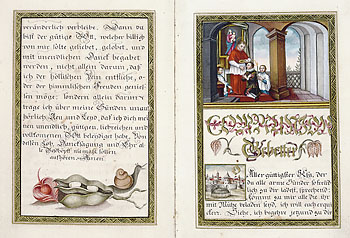 veränderlich verbleibe, Dann du
bist der gütigste GOtt, welcher billich
von mir solte geliebet, gelobet, und
mit unendlichen Danck begabet
werden, nicht allein darum, daß
ich der höllischen Pein entliche, o-
der der himmlischen Freuden genies
sen möge; sondern allein darum
trage ich über meine Sünden unauf
hörlich Reu und Leyd, daß ich dich mei
nen unendlich, gütigen, liebreichen und
vollkomnen GOtt beleidiget habe, Von
dessen Lob, Dancksagung und Ehr al
le Geschöpff niemahl sollen
aufhören, Amen.
COMMUNION
Gebetter
Aller gütigster JEsu, der
du alle arme Sünder so freund
lich zu dir ladest, sprechend:
kommt zu mir alle die ihr
mit Mühe beladen seyd, ich will euch erqui
cken. Siehe, ich begehre jetzund zu dir